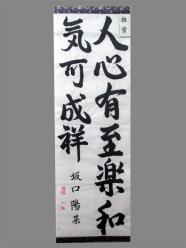 銀賞
人心有至樂和
気可成祥
坂口陽菜